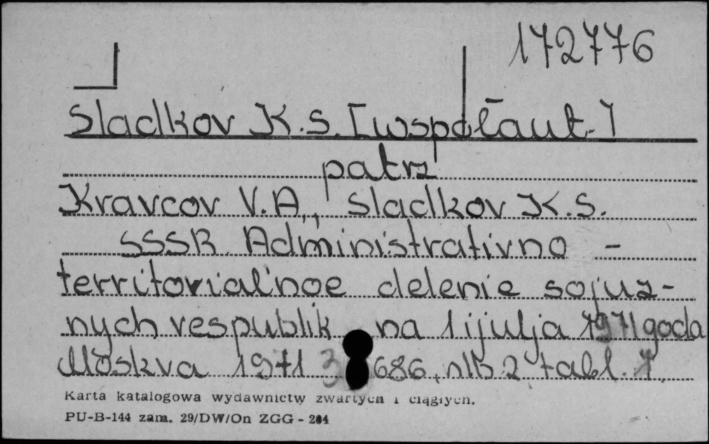 172776
Sladkov K.S. [współaut.]
patrz
Kravcov V.A., Sladkov K.S.
SSSR Administrativno -
territorial'noe delenie sojuz-
nych respublik na 1 ijulja 1971 goda
Moskva 1971 686, nlb 2 tabl. 7.
Karta katalogowa wydawnictw zwartych i ciągłych.
PU-B-144 zam. 29/DW/On ZGG - 204